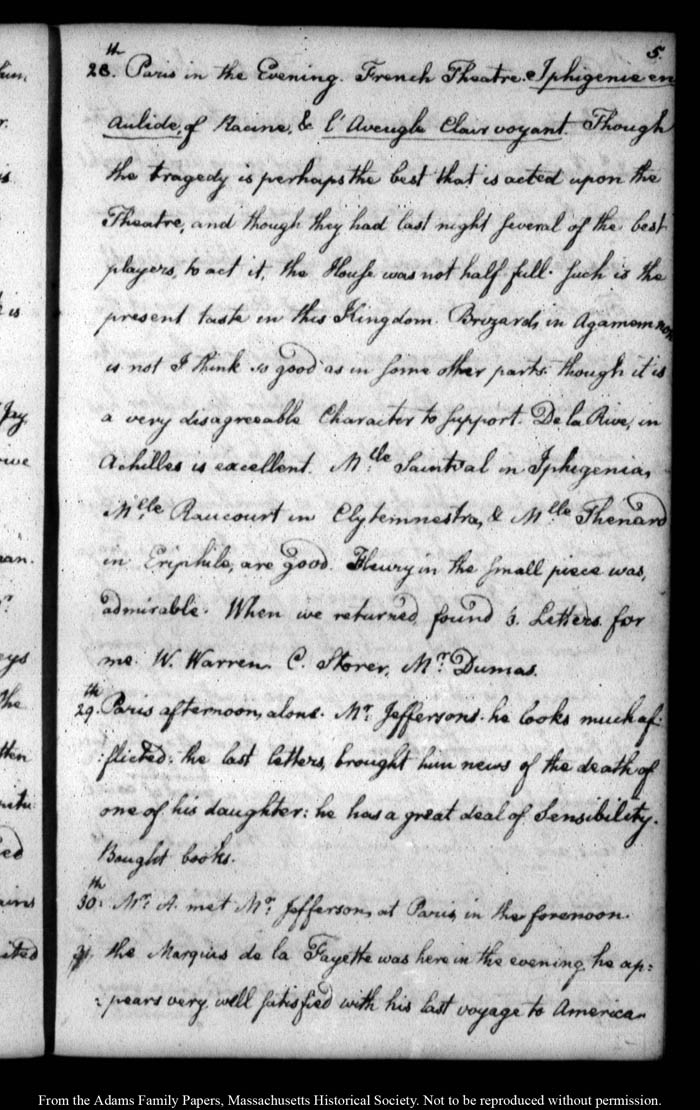 5.
28.th Paris in the Evening. French Theatre. Iphigenie en
Aulide, of Racine, & l'Aveugle Clairvoyant. Though
the tragedy is perhaps the best that is acted upon the
Theatre, and though they had last night several of the best
players, to act it, the House was not half full. Such is the
present taste in this Kingdom. Brizard, in Agamemnon
is not I think so good as in some other parts. though it is
a very disagreeable Character to support. De la Rive, in
Achilles is excellent. Mlle Saintval in Iphigenia,
Mlle Raucourt in Clytemnestra, & Mlle Thenard
in Eriphile, are good. Fleury in the small piece was,
admirable. When we returned, found 3. Letters for
me. W. Warren. C. Storer, Mr. Dumas.
29.th Paris afternoon, alone. Mr. Jeffersons. he looks much af:
:flicted. the last letters, brought him news of the death of
one of his daughter: he has a great deal of Sensibility.
Bought books.
30.th Mr. A. met Mr. Jefferson, at Paris, in the forenoon.
31. the Marquis de la Fayette was here in the evening, he ap:
:pears very well satisfied with his last voyage to America.
hun,
r.
is
Jay
owe
an.
eys
The
tten
ains
ited
From the Adams Family Papers, Massachusetts Historical Society. Not to be reproduced without permission.